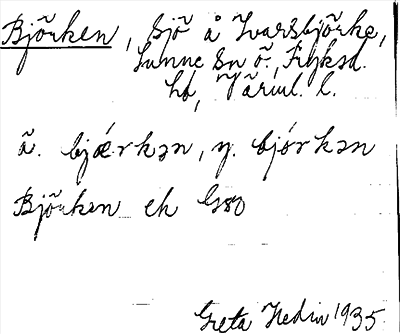 Björken, sjö å Ivarsbjörke,
Sunne sn ö., Fryksd.
hd, Värml. l.
ä. bjǽrkən, y. bjórkən
Björken ek G80
Greta Hedin 1935